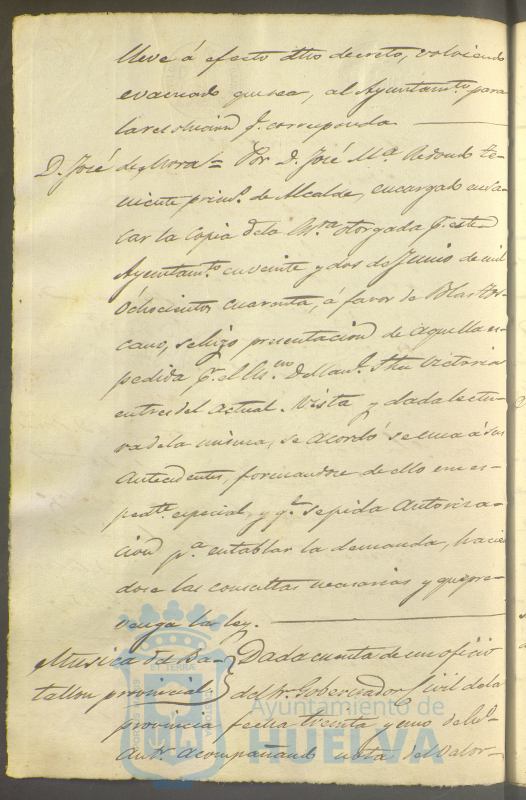 lleve á efecto dho decreto, volviendo
evacuado que sea, al Ayuntamto. para
la resolucion q. corresponda
D. José de Mora = Por D. José Ma Redondo te-
niente primo. de Alcalde, encargado en sa-
car la copia de la Esra. otorgada pr. este
Ayuntamto. en veinte y dos de Junio de mil
ochocientos cuarenta, á favor de Blas Tos-
cano, se hizo presentacion de aquella es-
pedida pr. el Esno. Victoria
en tres del actual. Vista y dada lectu-
ra de la misma, se acordó se una á sus
antecedentes, formandose de ello un es-
pedte. especial, y qe. se pida autoriza-
cion pa. entablar la demanda, hacien
dose las consultas necesarias y que pre-
venga la ley.
Musica del Ba-
tallon provincial
Dada cuenta de un oficio
del Sr. Gobernador Civil de la
provincia fecha treinta y uno de
Antr. acompañando nota del valor
Ayuntamiento de
HUELVA